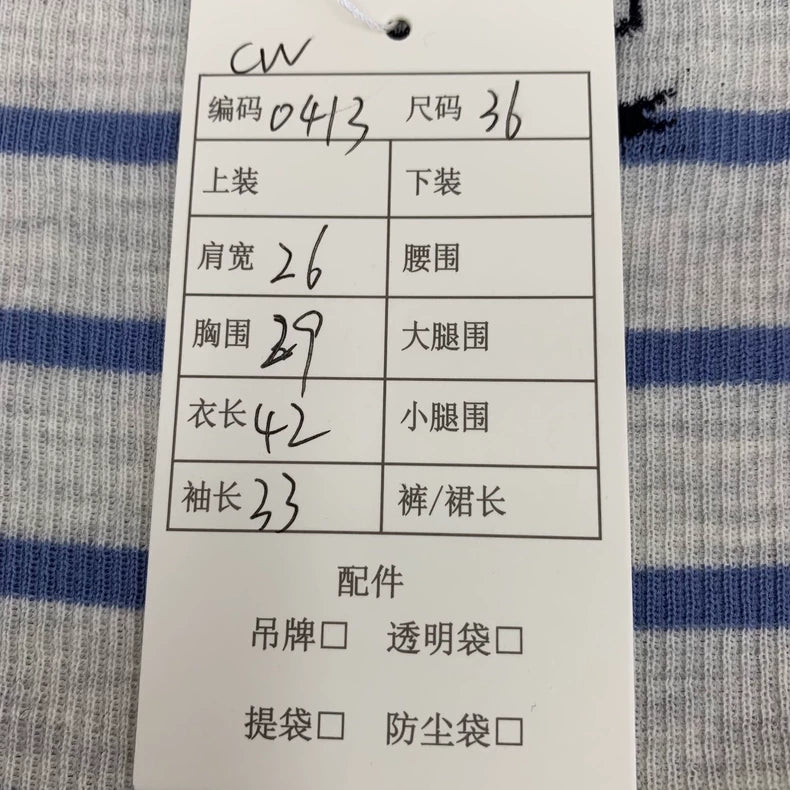 CW
编码 0413 尺码 36
上装 下装
肩宽 26 腰围
胸围 39 大腿围
衣长 42 小腿围
袖长 33 裤/裙长
配件
吊牌□ 透明袋□
提袋□ 防尘袋□